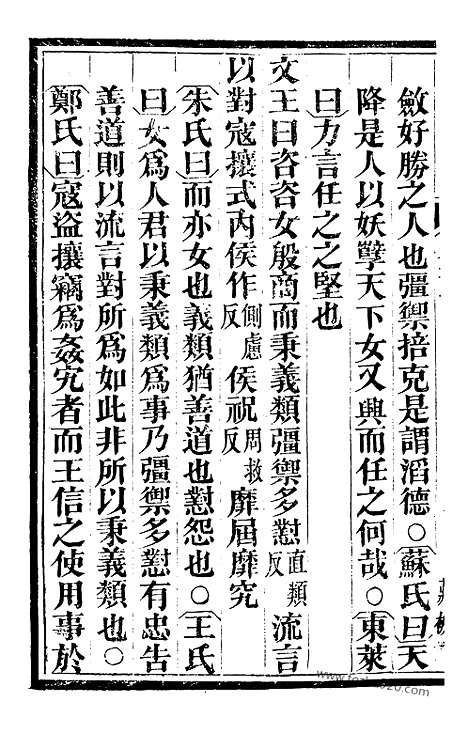 斂好勝之人也彊禦掊克是謂滔德○蘇氏曰天
降是人以妖孽天下女又興而任之何哉○東萊
曰力言任之之堅也
文王曰咨咨女殷商而秉義類彊禦多懟直類反流言
以對寇攘式內侯作側慮反侯祝周救反靡屆靡究
朱氏曰而亦女也義類猶善道也懟怨也○王氏
曰女爲人君以秉義類爲事乃彊禦多懟有忠告
善道則以流言對所爲如此非所以秉義類也○
鄭氏曰寇盜攘竊爲姦宄者而王信之使用事於